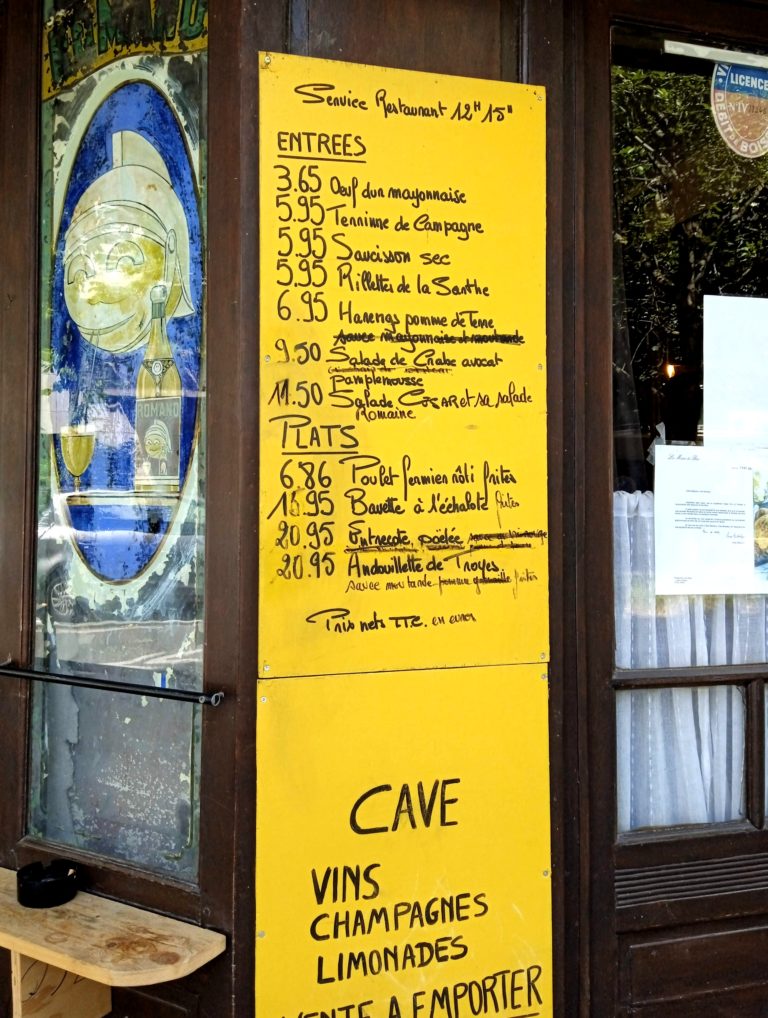 Service Restaurant 12H 15H
ENTREES
3.65 Oeuf dur mayonnaise
5.95 Terrinne de Campagne
5.95 Saucisson sec
5.95 Rillettes de la Sarthe
6.95 Harengs pomme de Terre
sauce mayonnaise et moutarde
9.50 Salade de Crabe avocat
pamplemousse
11.50 Salade COSAR et sa salade
Romaine
PLATS
6.86 Poulet fermier rôti frites
16.95 Bavette à l'échalote frites
20.95 Entrecote poëlée
20.95 Andouillette de Troyes.
sauce moutarde pomme frites
Prix nets TTC. en euros
CAVE
VINS
CHAMPAGNES
LIMONADES
VENTE A EMPORTER
ROMANO
LICENCE
DÉBIT DE BOISS